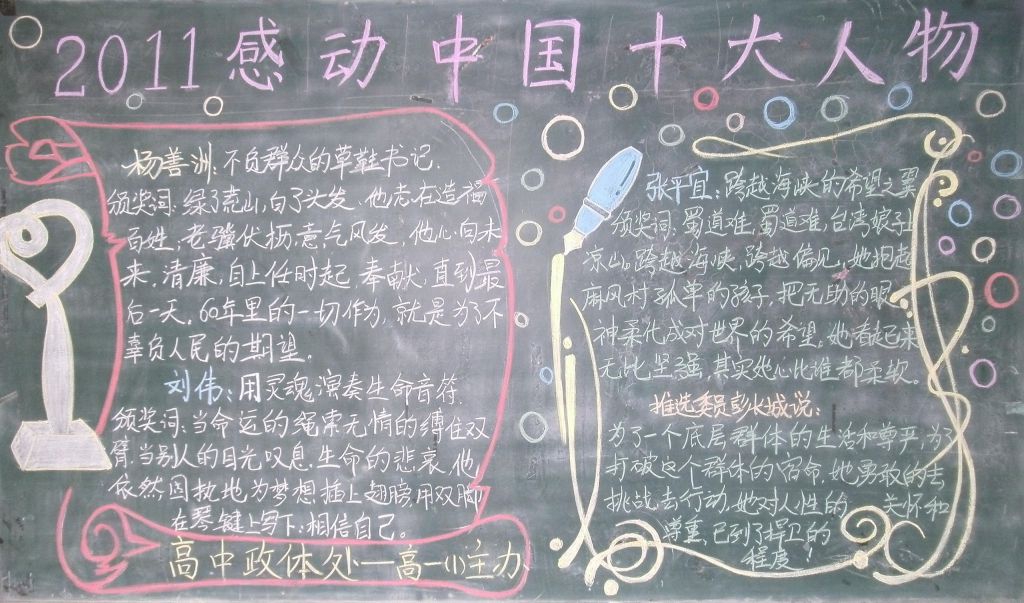 2011感动中国十大人物
杨善洲:不负群众的草鞋书记.
颁奖词:绿了荒山,白了头发、他志在造福
百姓;老骥伏枥,意气风发,他心向未
来,清廉,自上任时起 奉献,直到最
后一天。60年里的一切作为,就是为了不
辜负人民的期望。
刘伟:用灵魂演奏生命音符.
颁奖词:当命运的绳索无情的缚住双
臂,当别人的目光叹息生命的悲哀,他
依然固执地为梦想插上翅膀,用双脚
在琴键上写下:相信自己。
高中政体处—高一(1)主办
张平宜:跨越海峡的希望之翼
颁奖词:蜀道难,蜀道难,台湾娘子上
凉山。跨越海峡,跨越偏见,她抱起
麻风村孤单的孩子,把无助的眼
神柔化成对世界的希望。她看起来
无比坚强,其实她心比谁都柔软。
推选委员彭长城说:
为了一个底层群体的生活和尊严,为了
打破这个群体的宿命,她勇敢的去
挑战去行动,她对人性的 关怀和
尊重,已到了捍卫的
程度!